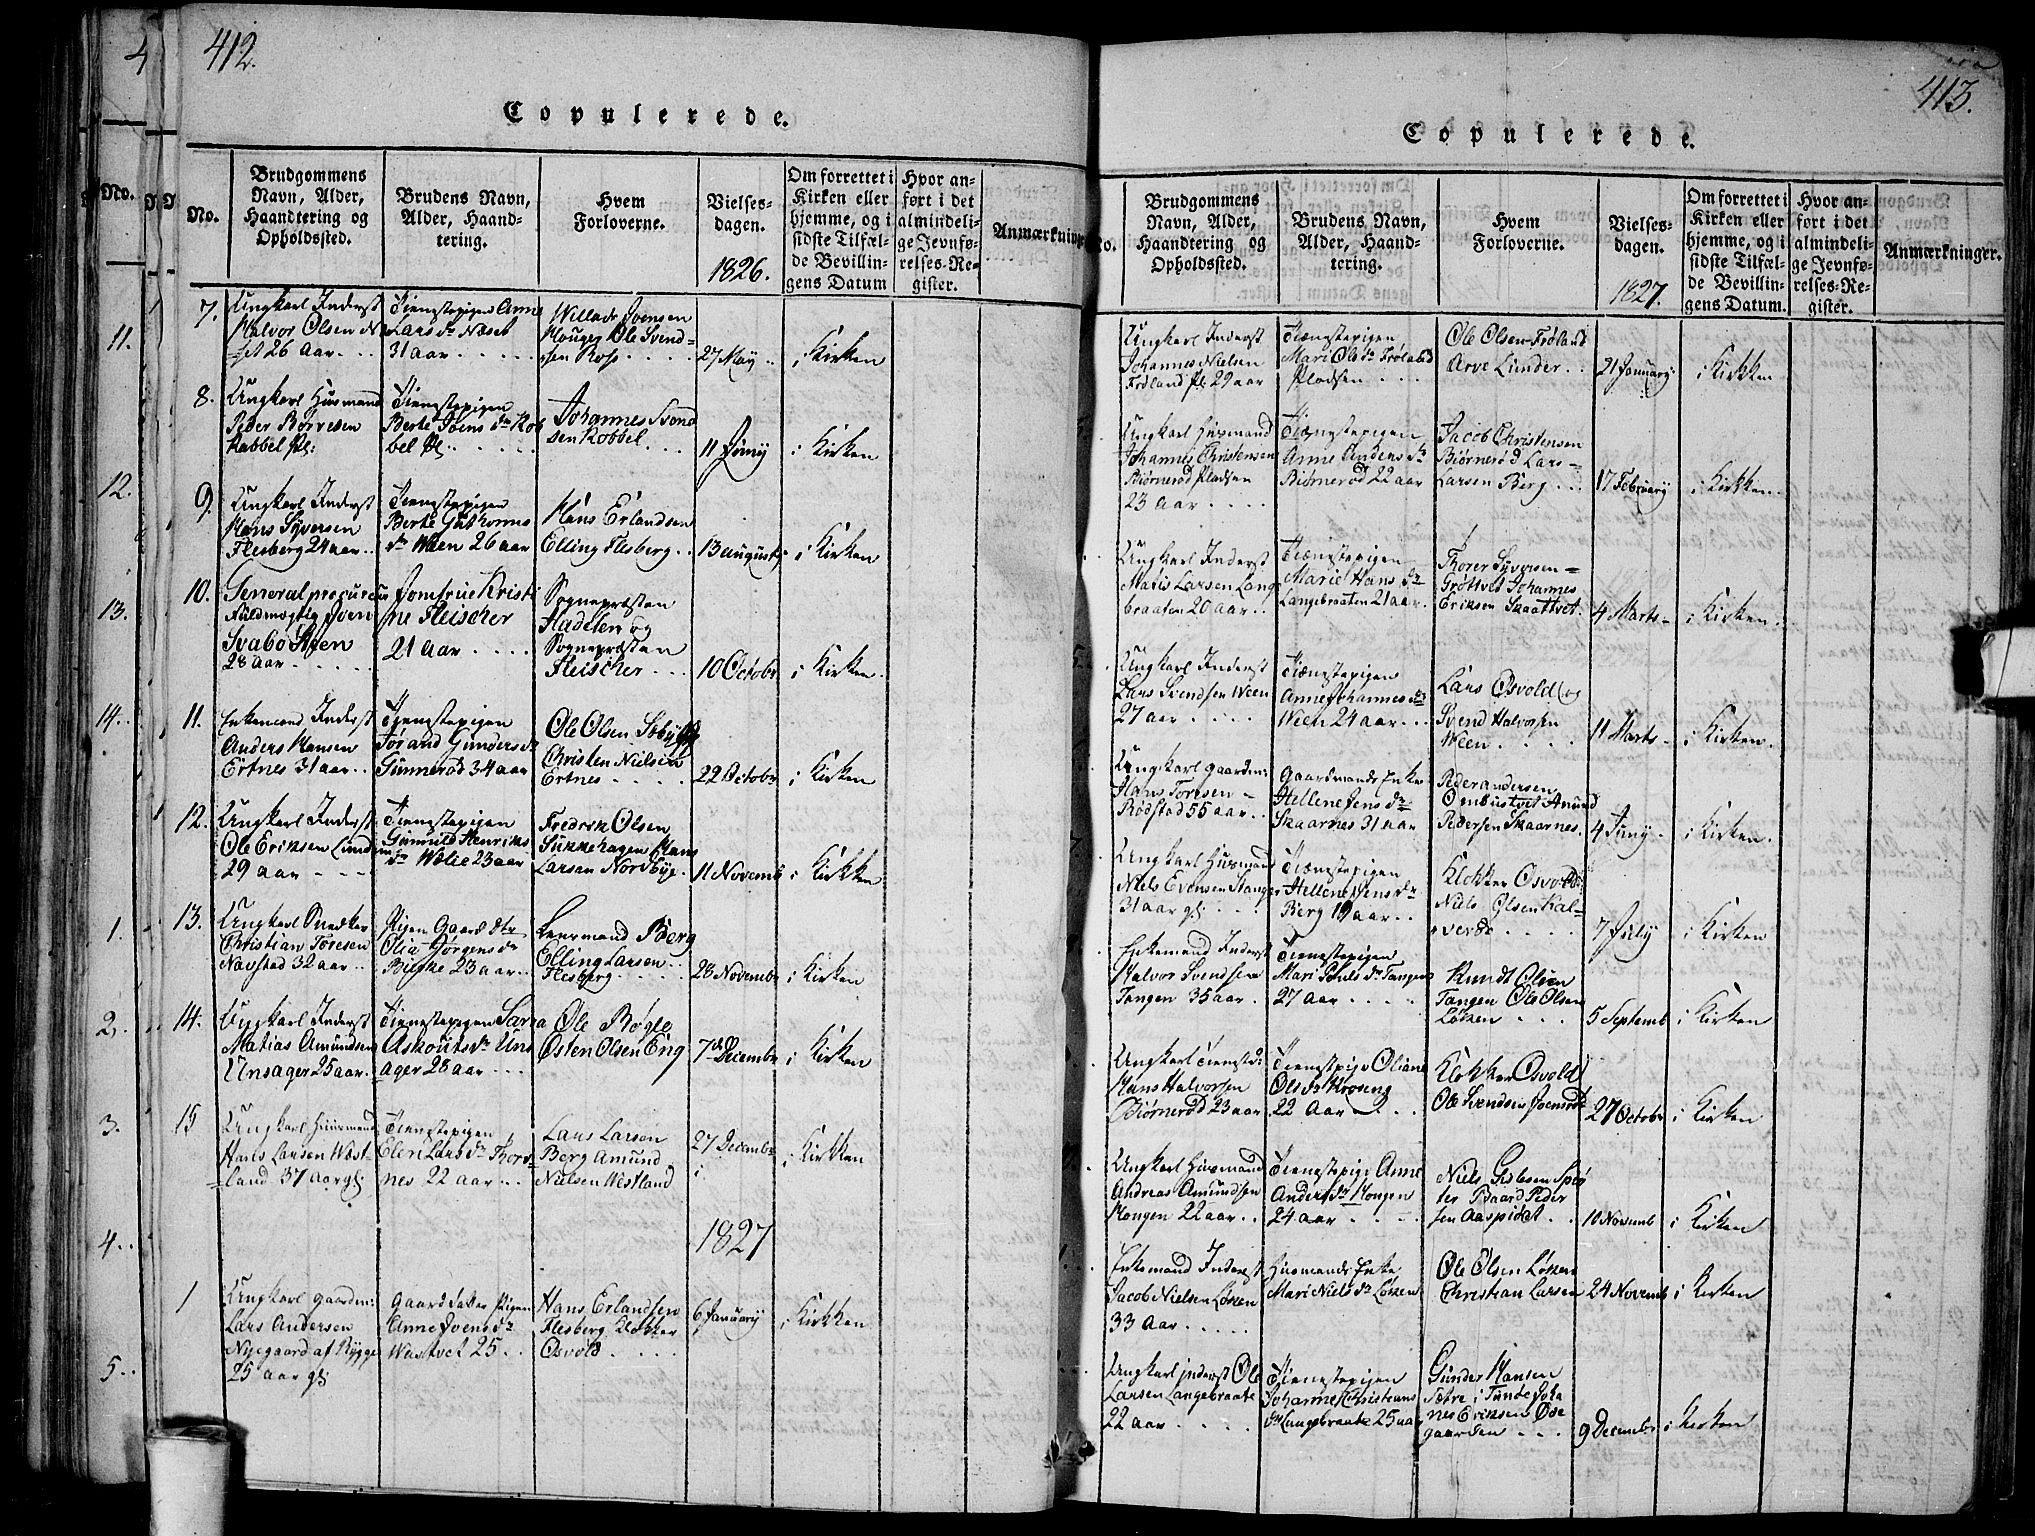 412.
Copulerede.
No.
Brudgommens
Navn, Alder,
Haandtering og
Opholdssted.
Brudens Navn,
Alder, Haand-
tering.
Hvem
Forloverne.
Vielses-
dagen.
1826.
Om forrettet i
Kirken eller
hjemme, og i
sidste Tilfæl-
de Bevillin-
gens Datum
Hvor an-
ført i det
almindeli-
ge Jevnfø-
relses-Re-
gister.
Anmærkninger
7. Ungkarl Inderst
Halvor Olsen Næ-
set 26 aar
Tienestepigen Anne
Lars dr Næset
31 aar
Ole Svend-
sen Ross
27 May
i Kirken
8. Ungkarl Huusmand
Peder Børresen
Kabbel Pl:
Tienestepigen
Berte Joens dr Kob
bel Pl.
Johannes Svend
sen Kobbel
11 Juny
i Kirken
9. Ungkarl Inderst
Hans Syversen
Flesberg 24 aar
Tienestepigen
Berte Guthorms
dr Ween 26 aar
Hans Erlandsen
Elling Flesberg
13 august
i Kirken
10. General procureur
Fuldmegtig Joen
Svabo Steen
28 aar
Jomfrue Kristi
ne Fleischer
21 aar
Sognepræsten
Hadelen og
Sognepræsten
Fleischer
10 Octobr
i Kirken
11. Enkemand Inderst
Anders Hansen
Ertnes 31 aar
Tienestepigen
Tørand Gunders dr
Gunnerød 34 aar
Ole Olsen
Christen Nielsen
Ertnes
22 Octobr
i Kirken
12. Ungkarl Inderst
Ole Eriksen Lunden
29 aar
Tienestepigen
Gunnild Henriks
dr Wolie 23 aar
Fredrik Olsen
Sukkehagen Hans
Larsen Nordbye
11 Novemb
i Kirken
13. Ungkarl Snedker
Christian Toresen
Navstad 32 aar
Pigen Gaard dtr
Olia Jørgens dr
Bielke 23 aar
Leensmand Berg
Elling Larsen
Flesberg
28 Novembr
i Kirken
14. Ungkarl Inderst
Matias Amundsen
Unsager 25 aar
Tienestepigen Sara
Askouts dr Uns
ager 28 aar
Ole Bøgle
Østen Olsen Eng
7d Decembr
i Kirken
15 Ungkarl Huusmand
Hans Larsen West-
land 37 aar gl:
Tienestepigen
Elen Lars dr Thors-
nes 22 aar
Lars Larsen
Berg Amund
Nielsen Westland
27 Decembr
i Kirken
1827
1 Ungkarl gaardm:
Lars Andersen
Nyegaard af Rygge
25 aar gl:
Gaard datter Pigen
Anne Joens dr
Wastvet 25
Hans Erlandsen
Flesberg Klokker
Osvold
6 January
i Kirken
413.
Copulerede.
No.
Brudgommens
Navn, Alder,
Haandtering og
Opholdssted.
Brudens Navn,
Alder, Haand-
tering.
Hvem
Forloverne.
Vielses-
dagen.
1827.
Om forrettet i
Kirken eller
hjemme, og i
sidste Tilfæl-
de Bevillin-
gens Datum.
Hvor an-
ført i det
almindeli-
ge Jevnfø-
relses-Re-
gister.
Anmærkninger.
Ungkarl Inderst
Johannes Nielsen
Frøland Pl: 29 aar
Tienestepigen
Mari Ols dr Frøland
Pladsen
Ole Olsen Frøland
Arve Lunder
21 January
i Kirken
Ungkarl Husmand
Johannes Christensen
Biørnerød Pladsen
23 aar
Tienestepigen
Anne Anders dr
Biørnerød 22 aar
Jacob Christensen
Biørnerød Lars
Larsen Berg
17 February
i Kirken
Ungkarl Inderst
Matis Larsen Lang
braaten 20 aar
Tienestepigen
Marie Hans dr
Langebraaten 21 aar
Thorer Syversen
Grøttvet Johannes
Eriksen Skaattvet
4 Marts
i Kirken
Ungkarl Inderst
Lars Svendsen Ween
27 aar
Tienestepigen
Anne Johannes dr
Ween 24 aar
Lars Osvold og
Svend Halvorsen
Ween
11 Marts
i Kirken
Ungkarl gaardm:
Hans Toresen
Rødstad 55 aar
Gaardmands Enke
Hellene Jens dr
Skaarnes 31 aar
Peder andersen
Ombustvet Amund
Pedersen Skaarnes
4 Juny
i Kirken
Ungkarl Husmand
Niels Evensen Stange
31 aar gl:
Tienestepigen
Hellene Jens dr
Berg 19 aar
Klokker Osvold
Niels Olsen Kal-
verød
7 July
i Kirken
Enkemand Inderst
Halvor Svendsen
Tangen 35 aar
Tienestepigen
Mari Pouls dr Tangen
27 aar
Knudt Olsen
Tangen Ole Olsen
Løken
5 Septemb
i Kirken
Ungkarl Tieneste
Hans Halvorsen
Biørnerød 23 aar
Tienestepige Oliane
Ols dr Krosing
22 Aar
Klokker Osvold
Ole Svendsen
27 Octobr
i Kirken
Ungkarl Husmand
Andreas Amundsen
Kongen 22 aar
Tienestepige Anne
Anders dr Kongen
24 aar
Niels
Baard Peder
sen
10 Novemb
i Kirken
Enkemand Inderst
Jacob Nielsen Løken
33 Aar
Husmands Enke
Mari Niels dr Løken
Ole Olsen Løken
Christian Larsen
24 Novemb
i Kirken
Ungkarl Inderst Ole
Larsen Langebraate
22 aar
Tienestepigen
Johanne Christians
dr Langebraate 25 aar
Gunder Hansen
Sætre i Tunde Joha
nes Eriksen Øde
gaarden
9 Decembr
i Kirken